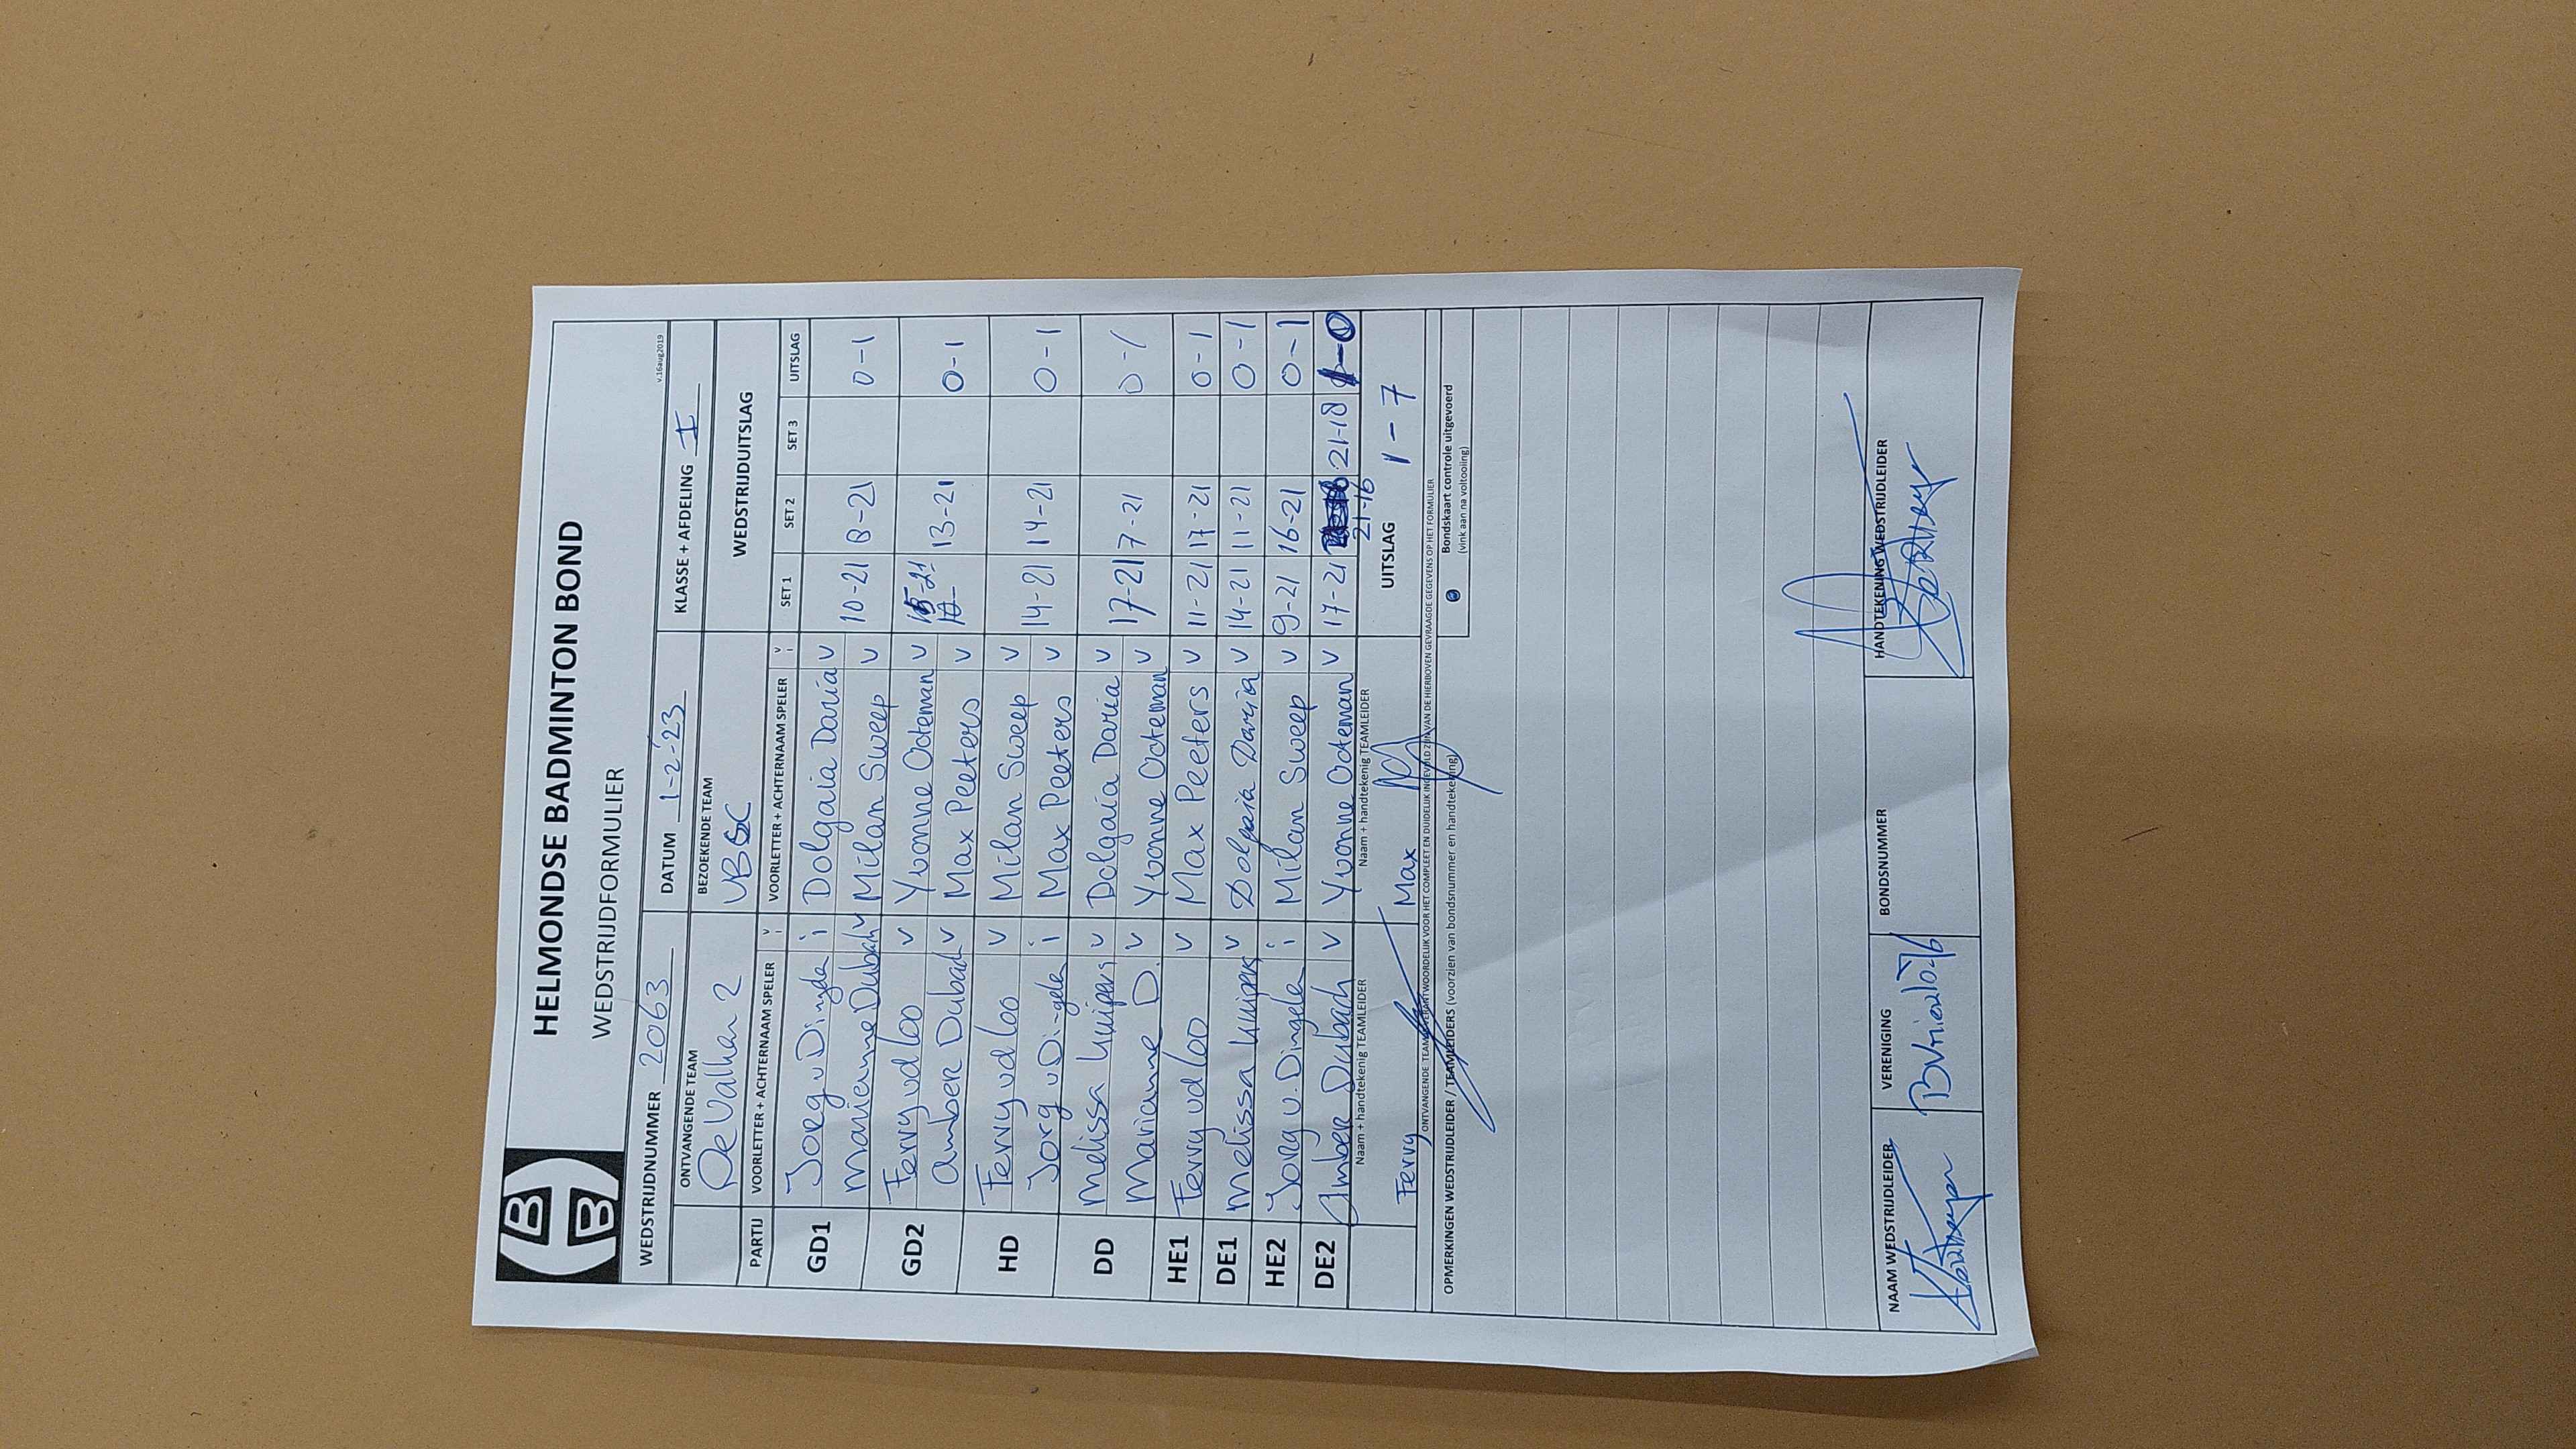 HELMONDSE BADMINTON BOND
WEDSTRIJDFORMULIER
v.16aug2019
WEDSTRIJDNUMMER 2063 DATUM 1-2-23 KLASSE + AFDELING I
ONTVANGENDE TEAM BEZOEKENDE TEAM WEDSTRIJDUITSLAG
De Valken 2
PARTIJ VOORLETTER + ACHTERNAAM SPELER V I VOORLETTER + ACHTERNAAM SPELER V I SET 1 SET 2 SET 3 UITSLAG
GD1 Joeg v Dingele i Dolgaia Daria v
Marianne Dubach v Milan Sweep v 10-21 8-21 0-1
GD2 Ferry vd loo v Yvonne Octeman v 15-21
Amber Dubach v Max Peeters v 13-21 0-1
HD Ferry vd loo v Milan Sweep v
Jorg v Dingele i Max Peeters v 14-21 14-21 0-1
DD Melissa Kuipers v Dolgaia Daria v
Marianne D. v Yvonne Octeman v 17-21 7-21 0-1
HE1 Ferry vd loo v Max Peeters v 11-21 17-21 0-1
DE1 Melissa Kuipers v Dolgaia Daria v 14-21 11-21 0-1
HE2 Jorg v. Dingele i Milan Sweep v 9-21 16-21 0-1
DE2 Amber Dubach v Yvonne Octeman v 17-21 21-16 21-18 1-0
Naam + handtekenig TEAMLEIDER Naam + handtekenig TEAMLEIDER UITSLAG 1-7
Ferry Max
ONTVANGENDE TEAM VERANTWOORDELIJK VOOR HET COMPLEET EN DUIDELIJK INGEVULD ZIJN VAN DE HIERBOVEN GEVRAAGDE GEGEVENS OP HET FORMULIER
OPMERKINGEN WEDSTRIJDLEIDER / TEAMLEIDERS (voorzien van bondsnummer en handtekening)
Bondskaart controle uitgevoerd
(vink aan na voltooiing)
NAAM WEDSTRIJDLEIDER VERENIGING BONDSNUMMER HANDTEKENING WEDSTRIJDLEIDER